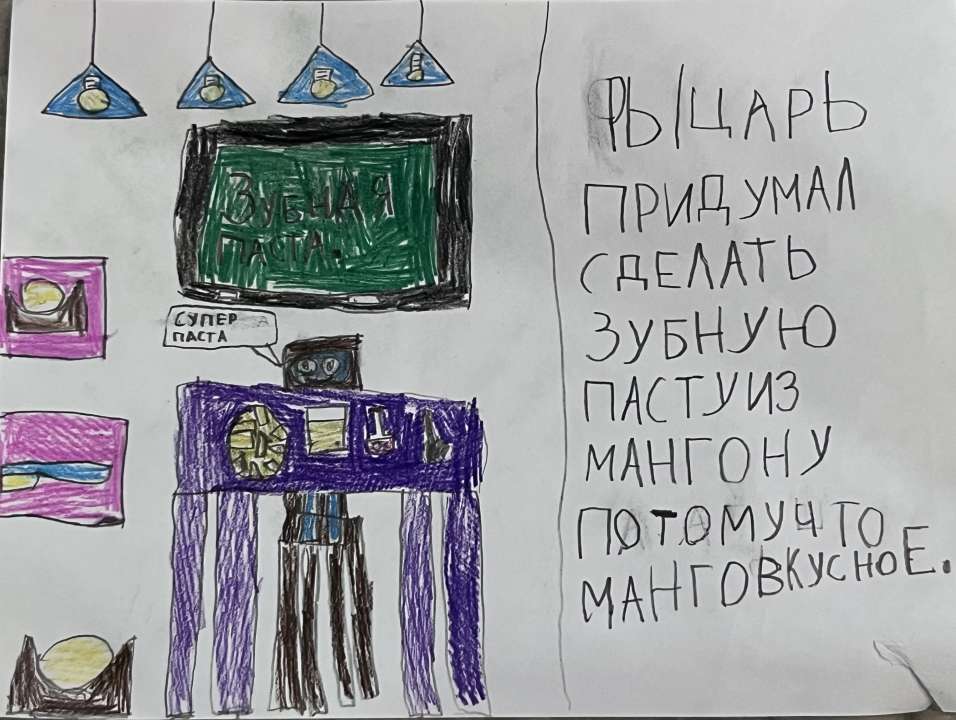 ЗУБНАЯ
ПАСТА.
СУПЕР
ПАСТА
РЫЦАРЬ
ПРИДУМАЛ
СДЕЛАТЬ
ЗУБНУЮ
ПАСТУИЗ
МАНГОНУ
ПОТОМУЧТО
МАНГОВКУСНОЕ.